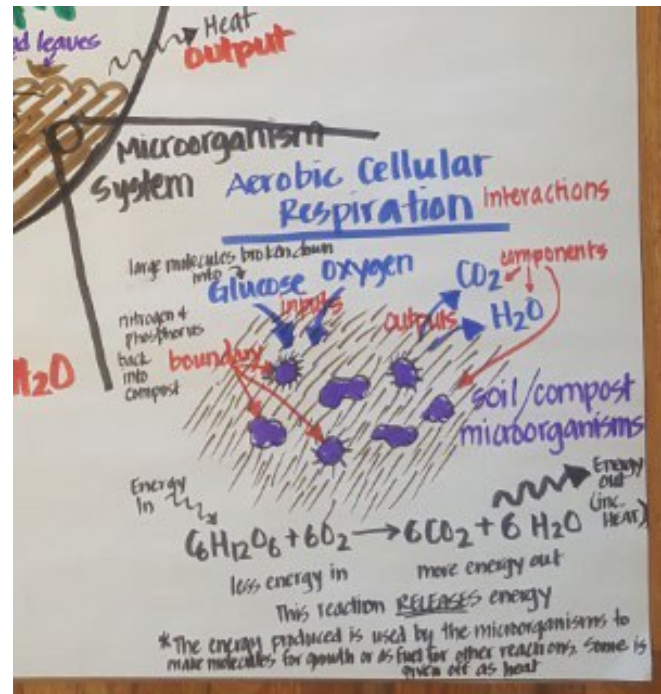 ad leaves
Heat
output
Microorganism
System
Aerobic Cellular
Respiration
interactions
large molecules broken down
into
Glucose Oxygen
inputs
CO2
components
outputs
H2O
nitrogen &
phosphorus
back
into
compost
boundary
H2O
soil/compost
microorganisms
Energy
In
Energy
out
(inc.
HEAT)
C6H12O6 + 6O2 → 6CO2 + 6 H2O
less energy in
more energy out
This reaction RELEASES energy
*The energy produced is used by the microorganisms to
make molecules for growth or as fuel for other reactions. Some is
given off as heat